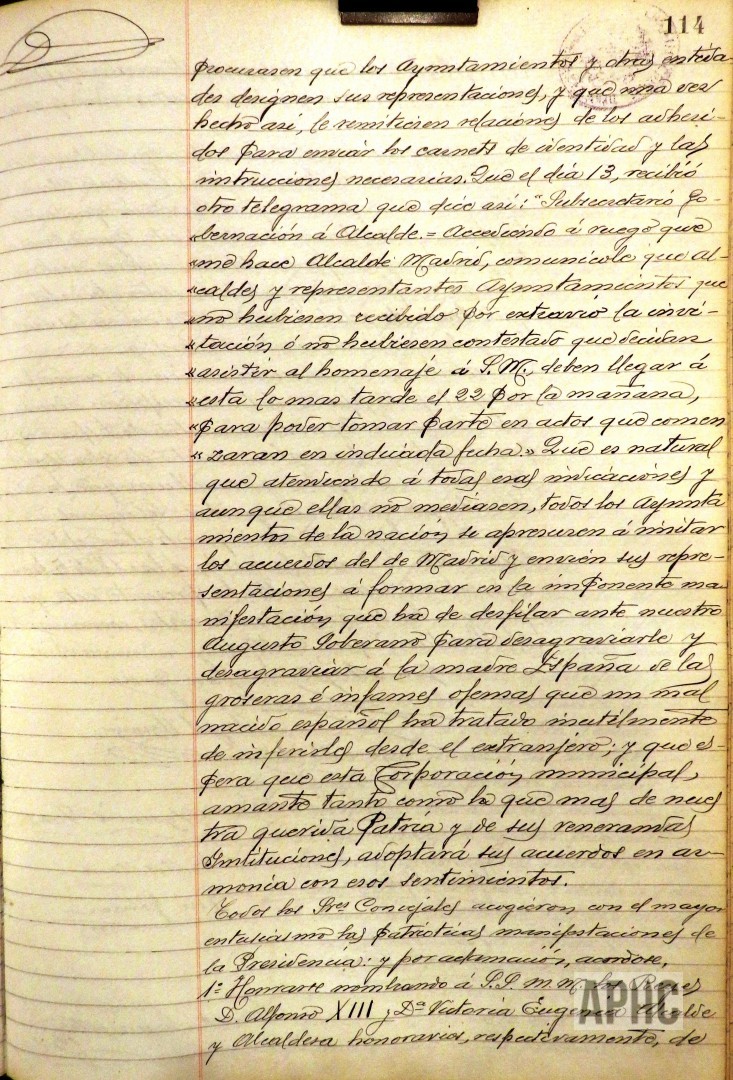 114
procurasen que los Ayuntamientos y otras entida-
des designen sus representaciones, y que una vez
hecho así, le remitiesen relaciones de los adheri-
dos para enviar los carnets de identidad y las
instrucciones necesarias. Que el día 13, recibió
otro telegrama que dice así: "Subsecretario Go-
"bernación á Alcalde.= Accediendo á ruego que
"me hace Alcalde Madrid, comunícole que al-
"caldes y representantes Ayuntamientos que
"no hubiesen recibido por extravio la invi-
"tación ó no hubiesen contestado que decidan
"asistir al homenaje á S.M. deben llegar á
"esta lo mas tarde el 22 por la mañana,
"para poder tomar parte en actos que comen
"zaran en indicada fecha." Que es natural
que atendiendo á todas esas indicaciones y
aunque ellas no mediasen, todos los Ayunta
mientos de la nación se apresuren á imitar
los acuerdos del de Madrid y envien sus repre-
sentaciones á formar en la imponente ma-
nifestación que ha de desfilar ante nuestro
Augusto Soberano para desagraviarle y
desagraviar á la madre España de las
groseras é infames ofensas que un mal
nacido español ha tratado inutilmente
de inferirles desde el extranjero; y que es-
pera que esta Corporación municipal,
amante tanto como la que mas de nues
tra querida Patria y de sus venerandas
Instituciones, adoptará sus acuerdos en ar-
monia con esos sentimientos.
Todos los Sres Concejales acogieron con el mayor
entusiasmo las patrioticas manifestaciones de
la Presidencia: y por aclamación, acordose,
1º Honrarse nombrando á S.S. M.M. los Reyes
D. Alfonso XIII y Dª Victoria Eugenia Alcalde
y Alcaldesa honorarios, respectivamente, de
APHC